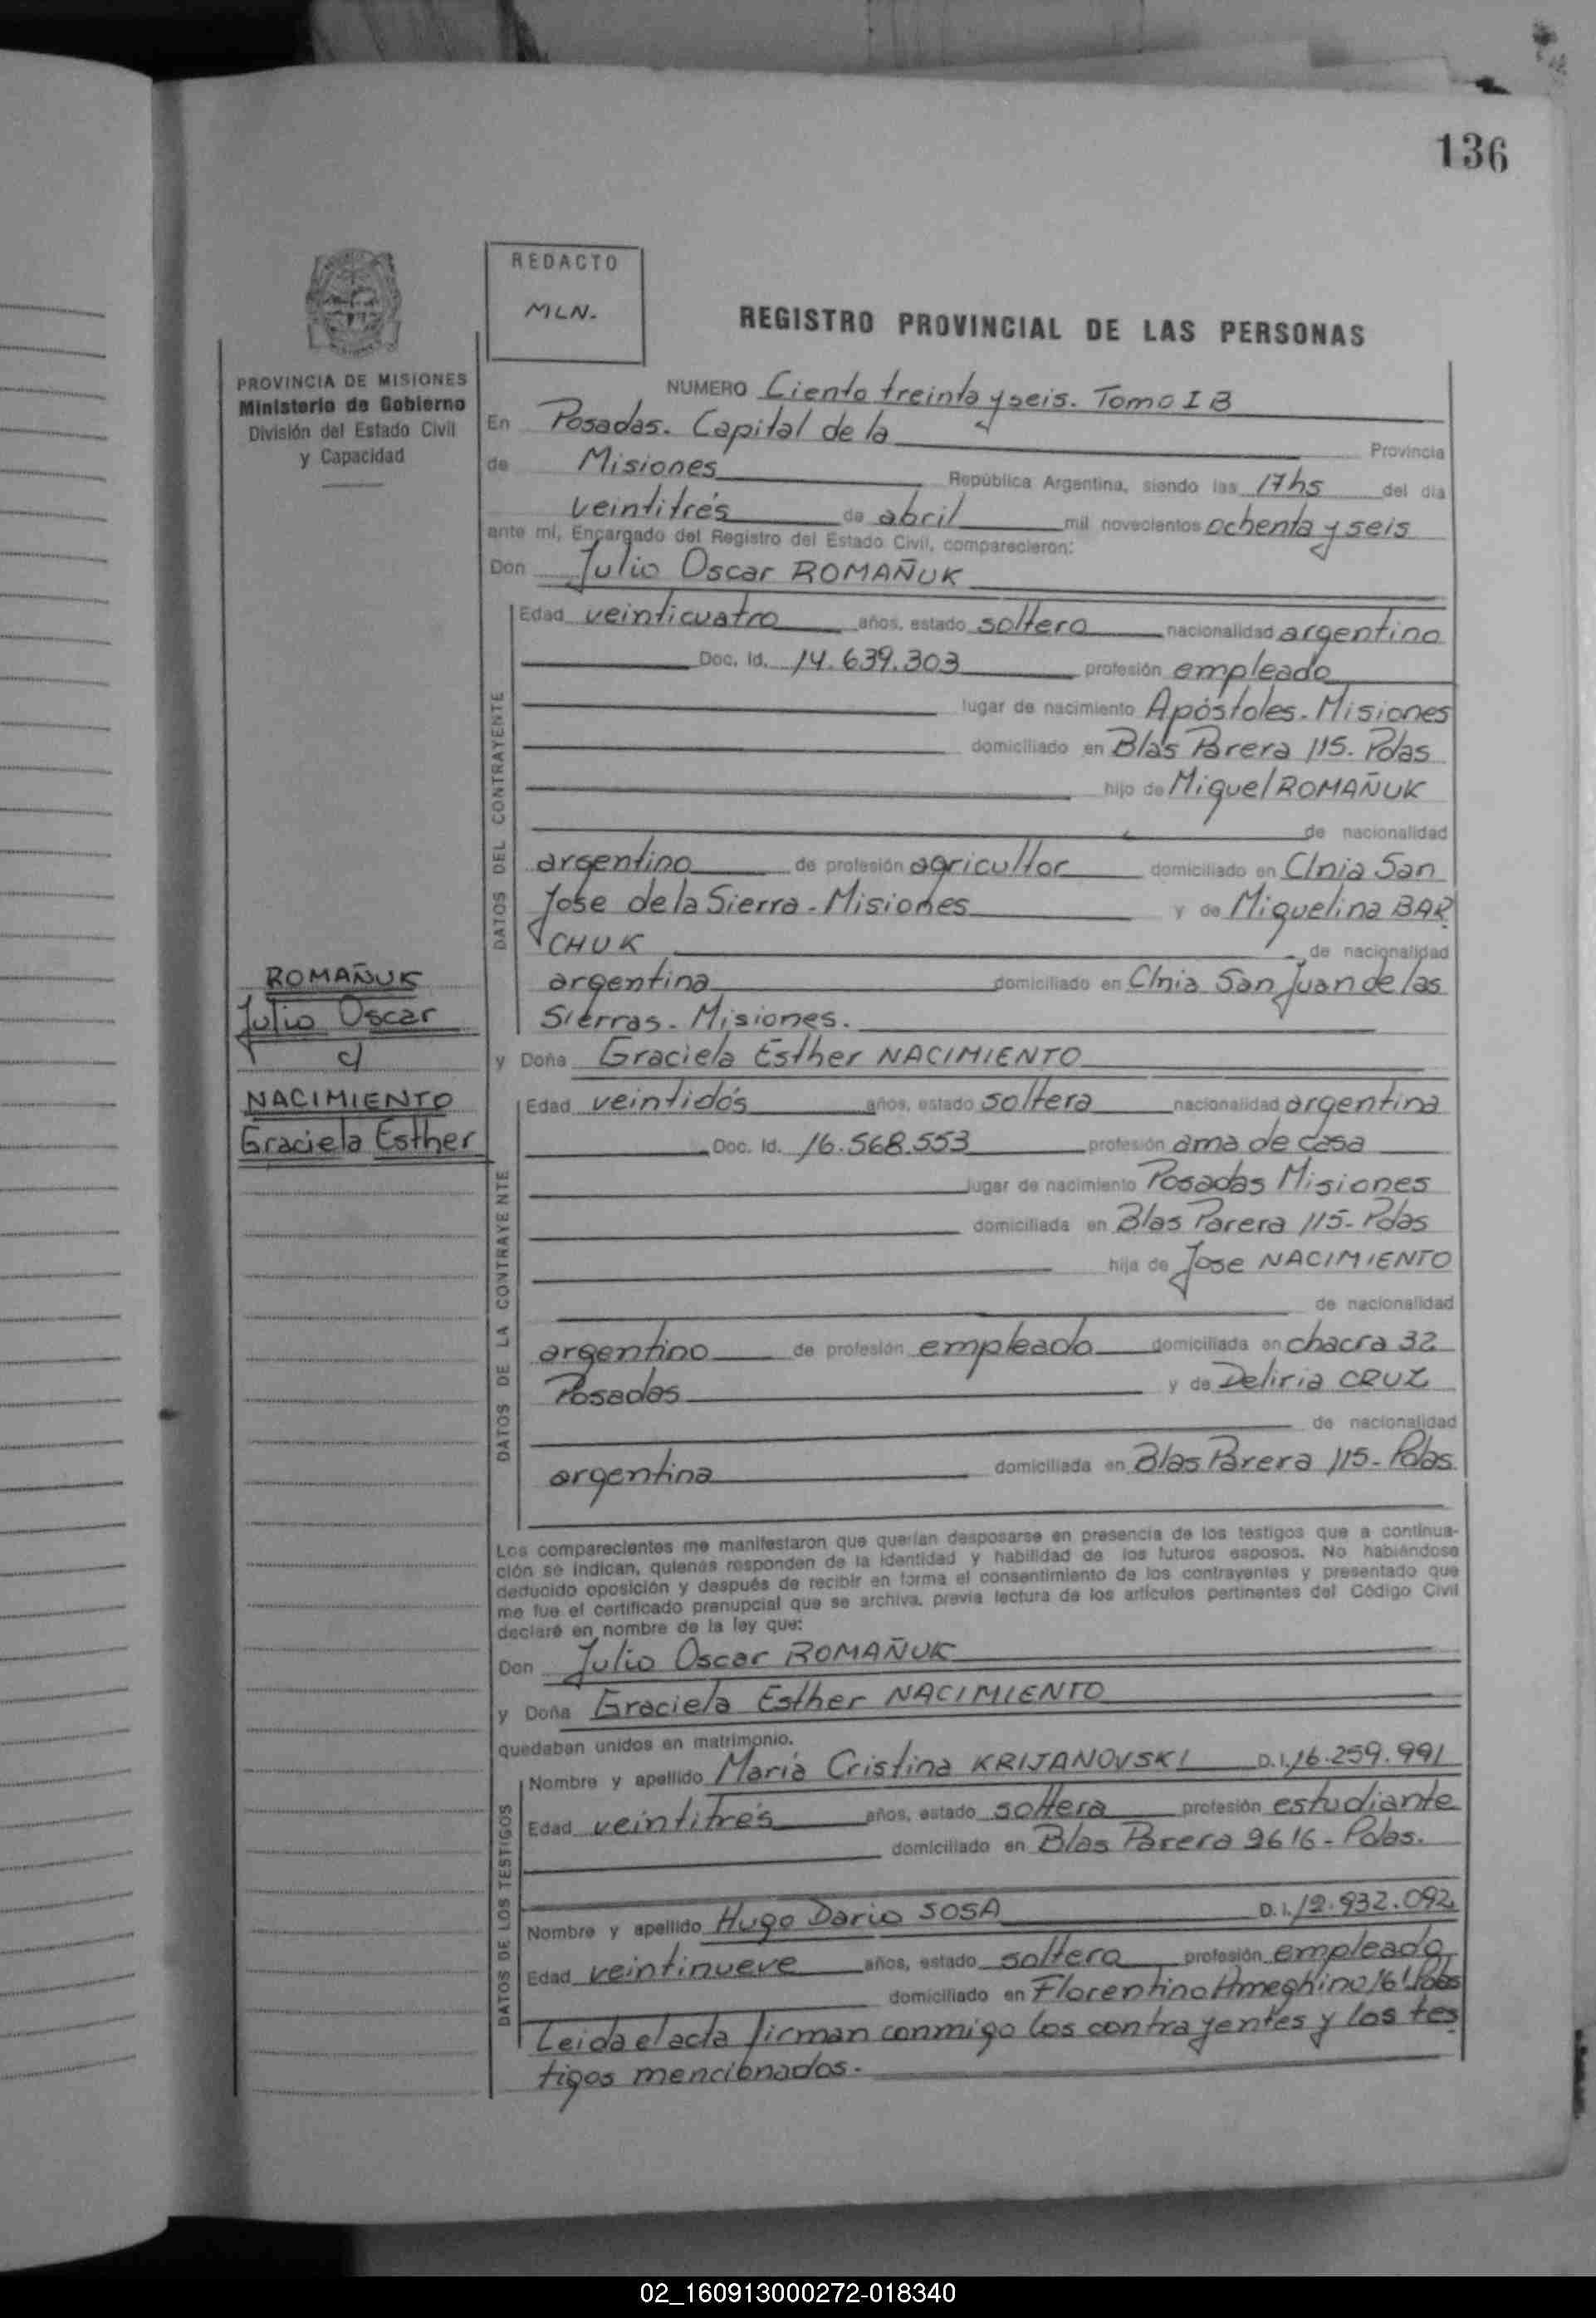 136
REDACTO
MLN.
REGISTRO PROVINCIAL DE LAS PERSONAS
PROVINCIA DE MISIONES
Ministerio de Gobierno
División del Estado Civil
y Capacidad
NUMERO Ciento treinta y seis. Tomo I B
En Posadas. Capital de la Provincia
de Misiones República Argentina, siendo las 17hs del día
veintitrés de abril mil novecientos ochenta y seis
ante mí, Encargado del Registro del Estado Civil, comparecieron:
Don Julio Oscar ROMAÑUK
DATOS DEL CONTRAYENTE
Edad veinticuatro años, estado soltero nacionalidad argentino
Doc. Id. 14.639.303 profesión empleado
lugar de nacimiento Apóstoles. Misiones
domiciliado en Blas Parera 115. Pdas
hijo de Miguel ROMAÑUK
de nacionalidad
argentino de profesión agricultor domiciliado en Clnia San
Jose de la Sierra - Misiones y de Miguelina BAR
CHUK de nacionalidad
argentina domiciliado en Clnia San Juan de las
Sierras. Misiones.
ROMAÑUK
Julio Oscar
c/
NACIMIENTO
Graciela Esther
y Doña Graciela Esther NACIMIENTO
DATOS DE LA CONTRAYENTE
Edad veintidós años, estado soltera nacionalidad argentina
Doc. Id. 16.568.553 profesión ama de casa
lugar de nacimiento Posadas Misiones
domiciliada en Blas Parera 115- Pdas
hija de Jose NACIMIENTO
de nacionalidad
argentino de profesión empleado domiciliada en chacra 32
Posadas y de Deliria CRUZ
de nacionalidad
argentina domiciliada en Blas Parera 115- Pdas
Los comparecientes me manifestaron que querían desposarse en presencia de los testigos que a continua-
ción se indican, quienes responden de la identidad y habilidad de los futuros esposos. No habiéndose
deducido oposición y después de recibir en forma el consentimiento de los contrayentes y presentado que
me fue el certificado prenupcial que se archiva, previa lectura de los artículos pertinentes del Código Civil
declaré en nombre de la ley que:
Don Julio Oscar ROMAÑUK
y Doña Graciela Esther NACIMIENTO
quedaban unidos en matrimonio.
DATOS DE LOS TESTIGOS
Nombre y apellido María Cristina KRIJANOVSKI D.I. 16.259.991
Edad veintitrés años, estado soltera profesión estudiante
domiciliado en Blas Parera 9616 - Pdas.
Nombre y apellido Hugo Dario SOSA D.I. 12.932.092
Edad veintinueve años, estado soltero profesión empleado
domiciliado en Florentino Ameghino 161 Pdas
Leida el acta firman conmigo los contrayentes y los tes
tigos mencionados.-
02_160913000272-018340